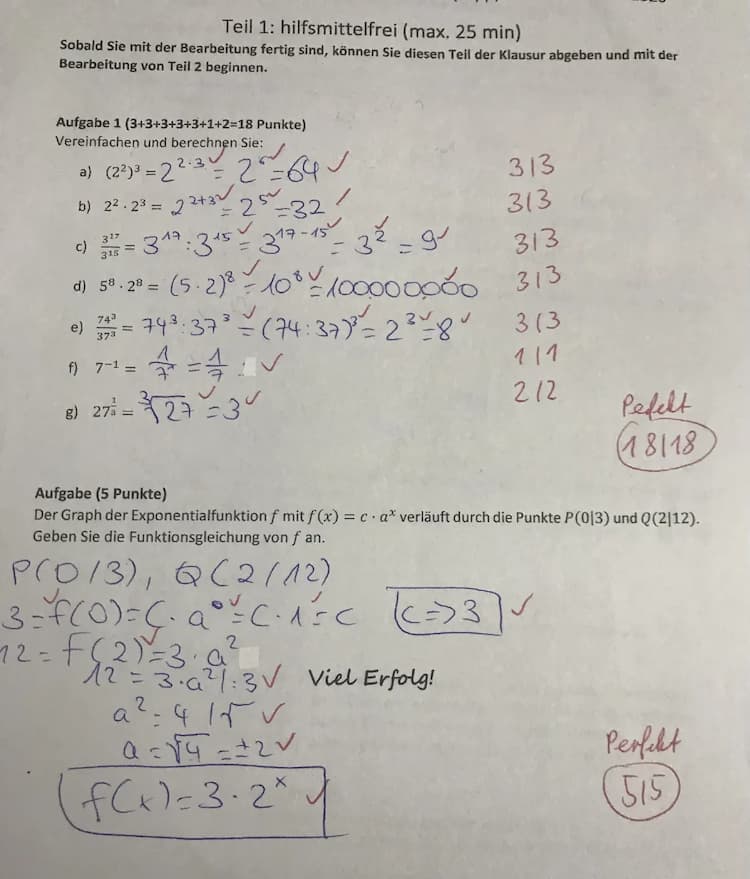 Teil 1: hilfsmittelfrei (max. 25 min)
Sobald Sie mit der Bearbeitung fertig sind, können Sie diesen Teil der Klausur abgeben und mit der
Bearbeitung von Teil 2 beginnen.
Aufgabe 1 (3+3+3+3+3+1+2=18 Punkte)
Vereinfachen und berechnen Sie:
a) (2²)³ = 2^(2·3) = 2⁶ = 64 ✓ 3|3
b) 2² · 2³ = 2^(2+3) = 2⁵ = 32 3|3
c) 3¹⁷/3¹⁵ = 3¹⁷ : 3¹⁵ = 3^(17-15) = 3² = 9 3|3
d) 5⁸ · 2⁸ = (5 · 2)⁸ = 10⁸ = 100000000 3|3
e) 74³/37³ = 74³ : 37³ = (74 : 37)³ = 2³ = 8 3|3
f) 7⁻¹ = 1/7¹ = 1/7 ✓ 1|1
g) 27^(1/3) = ³√27 = 3 ✓ 2|2
Pefekt
18|18
Aufgabe (5 Punkte)
Der Graph der Exponentialfunktion f mit f(x) = c · aˣ verläuft durch die Punkte P(0|3) und Q(2|12).
Geben Sie die Funktionsgleichung von f an.
P(0/3), Q(2/12)
3 = f(0) = C · a⁰ = C · 1 = C C => 3 ✓
12 = f(2) = 3 · a²
12 = 3 · a² | : 3 ✓ Viel Erfolg!
a² = 4 | √ ✓
a = √4 = ±2 ✓
f(x) = 3 · 2ˣ ✓
Perfekt
5|5